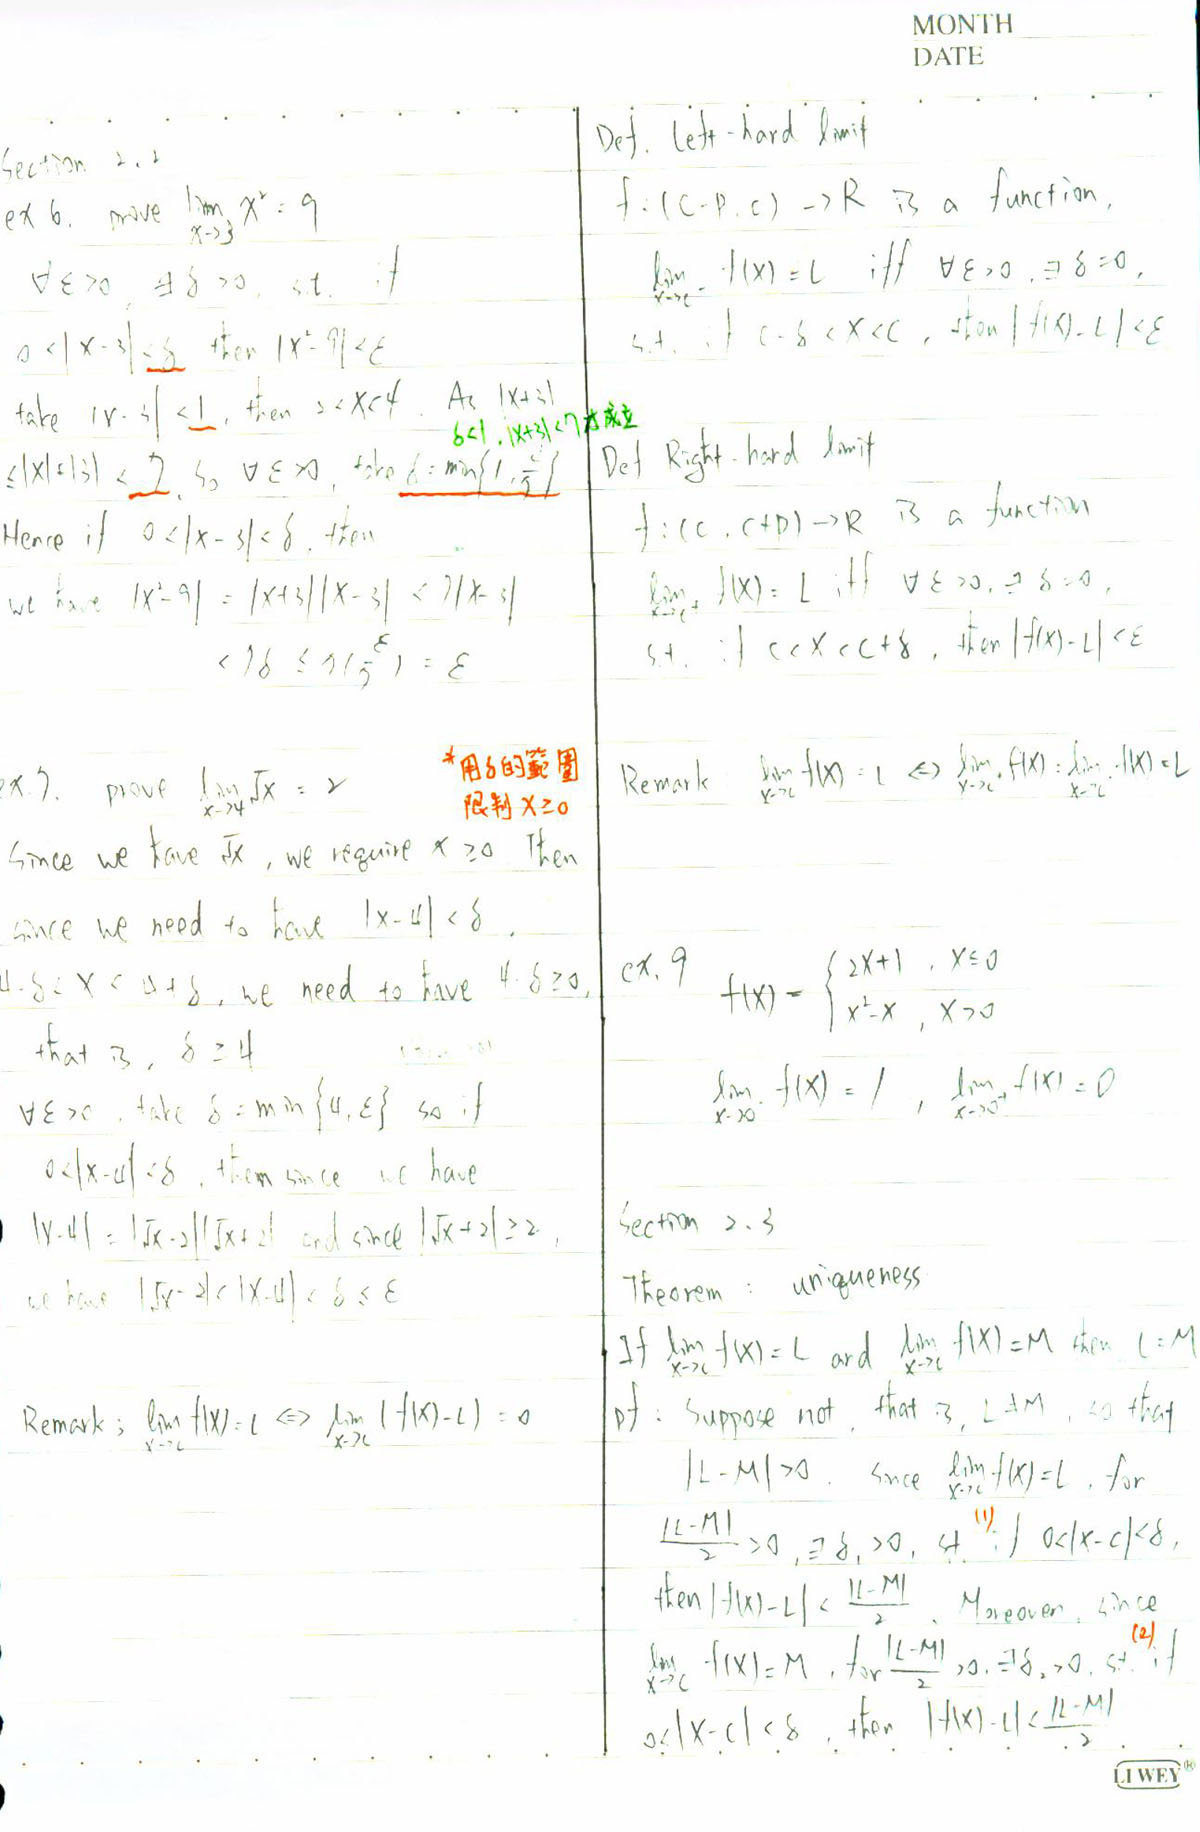 MONTH
DATE
Section 2.2
ex 6. prove lim x→3 x² = 9
∀ε>0, ∃δ>0, s.t. if
0<|x-3|<δ, then |x²-9|<ε
take |x-3|<1, then 2<x<4. As |x+3|
δ<1, |x+3|<7才成立
≤|x|+|3|<7, so ∀ε>0, take δ=min{1, ε/7}
Hence if 0<|x-3|<δ, then
we have |x²-9| = |x+3||x-3| < 7|x-3|
<7δ ≤ 7(ε/7) = ε
ex.7. prove lim x→4 √x = 2
*用δ的範圍
限制 x≥0
Since we have √x, we require x≥0. Then
since we need to have |x-4|<δ,
4-δ<x<4+δ, we need to have 4-δ≥0,
that is, δ≥4
∀ε>0, take δ=min{4,ε} so if
0<|x-4|<δ, them since we have
|x-4|=|√x-2||√x+2| and since |√x+2|≥2,
we have |√x-2|<|x-4|<δ≤ε
Remark; lim x→c f(x)=L ⇔ lim x→c (f(x)-L)=0
Def. Left-hard limit
f:(c-p,c)→R is a function,
lim x→c⁻ f(x)=L iff ∀ε>0, ∃δ=0,
s.t. if c-δ<x<c, then |f(x)-L|<ε
Def Right-hard limit
f:(c,c+p)→R is a function
lim x→c⁺ f(x)=L iff ∀ε>0, ∃δ=0,
s.t. if c<x<c+δ, then |f(x)-L|<ε
Remark lim x→c f(x)=L ⇔ lim x→c⁺ f(x)=lim x→c⁻ f(x)=L
ex.9 f(x)={2x+1, x≤0
x²-x, x>0
lim x→0⁻ f(x)=1, lim x→0⁺ f(x)=0
Section 2.3
Theorem: uniqueness
If lim x→c f(x)=L and lim x→c f(x)=M then L=M
pf: Suppose not, that is, L≠M, so that
|L-M|>0. Since lim x→c f(x)=L, for
|L-M|/2>0, ∃δ₁>0, s.t. (1) if 0<|x-c|<δ₁
then |f(x)-L|<|L-M|/2. Moreover, since
lim x→c f(x)=M, for |L-M|/2>0, ∃δ₂>0, s.t. (2) if
0<|x-c|<δ, then |f(x)-L|<|L-M|/2
LI WEY®